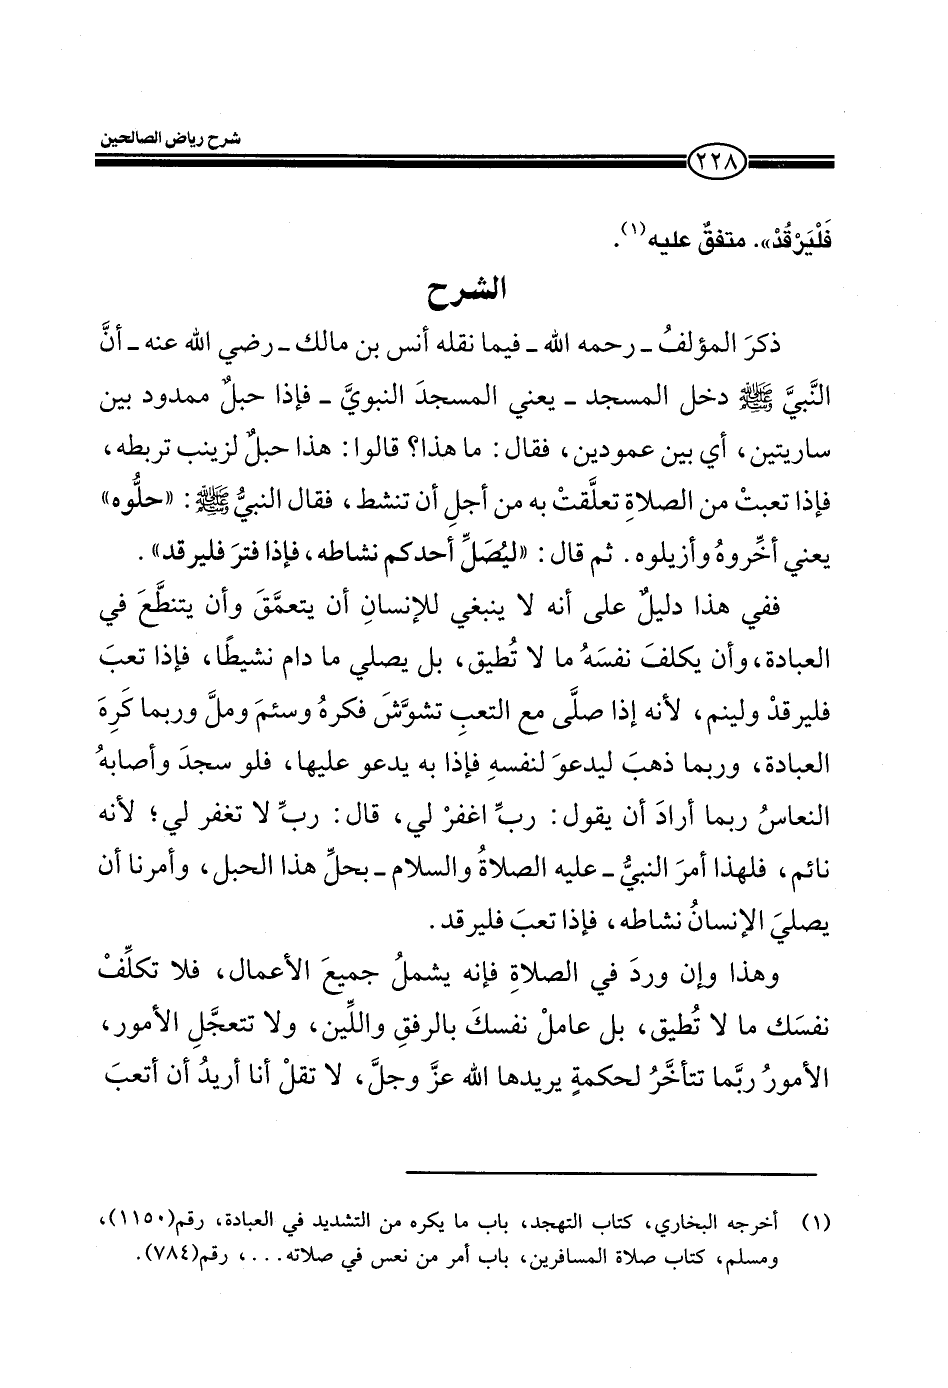 شرح رياض الصالحين
٢٢٨
فَلْيَرْقُدْ». متفقٌ عليه(١).
الشرح
ذكرَ المؤلفُ ـ رحمه الله ـ فيما نقله أنس بن مالك ـ رضي الله عنه ـ أنَّ
النَّبيَّ ﷺ دخل المسجد ـ يعني المسجدَ النبويَّ ـ فإذا حبلٌ ممدود بين
ساريتين، أي بين عمودين، فقال: ما هذا؟ قالوا: هذا حبلٌ لزينب تربطه،
فإذا تعبتْ من الصلاةِ تعلَّقتْ به من أجلِ أن تنشط، فقال النبيُّ ﷺ: «حلُّوه»
يعني أخِّروهُ وأزيلوه. ثم قال: «ليُصَلِّ أحدكم نشاطه، فإذا فترَ فليرقد».
ففي هذا دليلٌ على أنه لا ينبغي للإنسانِ أن يتعمَّقَ وأن يتنطَّعَ في
العبادة، وأن يكلفَ نفسَهُ ما لا تُطيق، بل يصلي ما دام نشيطًا، فإذا تعبَ
فليرقدْ ولينم، لأنه إذا صلَّى مع التعبِ تشوَّشَ فكرهُ وسئمَ وملَّ وربما كَرِهَ
العبادة، وربما ذهبَ ليدعوَ لنفسهِ فإذا به يدعو عليها، فلو سجدَ وأصابهُ
النعاسُ ربما أرادَ أن يقول: ربِّ اغفرْ لي، قال: ربِّ لا تغفر لي؛ لأنه
نائم، فلهذا أمرَ النبيُّ ـ عليه الصلاةُ والسلام ـ بحلِّ هذا الحبل، وأمرنا أن
يصليَ الإنسانُ نشاطه، فإذا تعبَ فليرقد.
وهذا وإن وردَ في الصلاةِ فإنه يشملُ جميعَ الأعمال، فلا تكلِّفْ
نفسَك ما لا تُطيق، بل عاملْ نفسكَ بالرفقِ واللِّين، ولا تتعجَّلِ الأمور،
الأمورُ ربَّما تتأخَّرُ لحكمةٍ يريدها الله عزَّ وجلَّ، لا تقلْ أنا أريدُ أن أتعبَ
(١) أخرجه البخاري، كتاب التهجد، باب ما يكره من التشديد في العبادة، رقم(١١٥٠)،
ومسلم، كتاب صلاة المسافرين، باب أمر من نعس في صلاته...، رقم(٧٨٤).